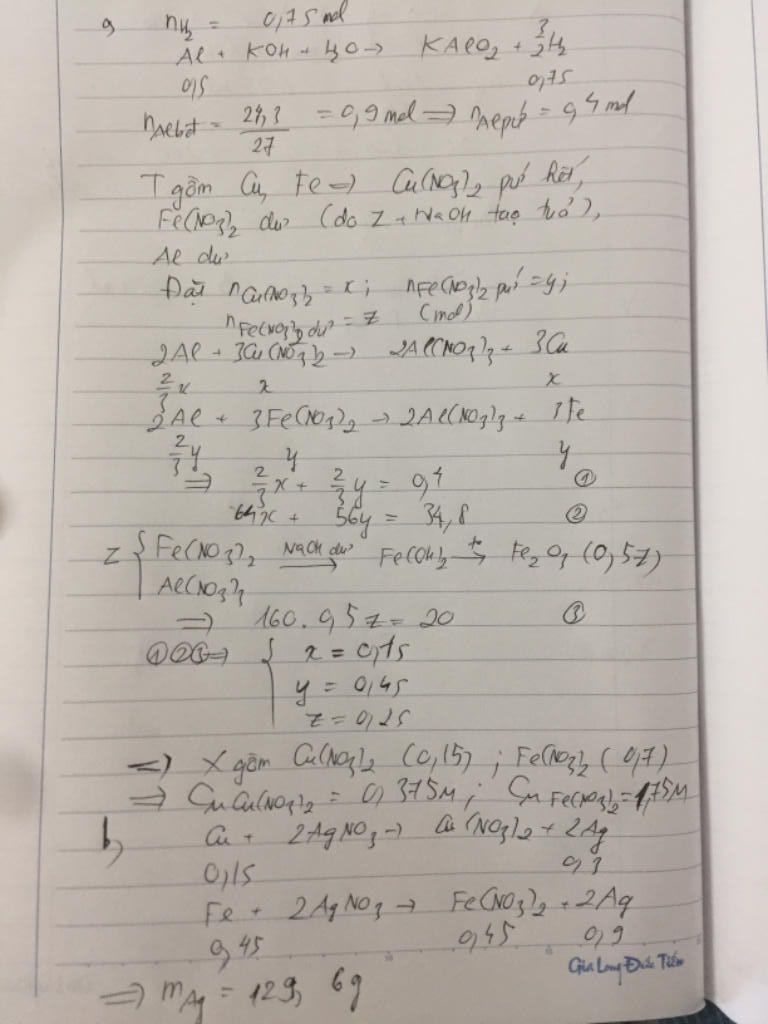 a, nH₂ = 0,75 mol
Al + KOH + H₂O → KAlO₂ + 3/2 H₂
0,5 0,75
nAl bđ = 24,3/27 = 0,9 mol ⇒ nAl pứ = 0,4 mol
T gồm Cu, Fe ⇒ Cu(NO₃)₂ pứ hết,
Fe(NO₃)₂ dư (do Z + NaOH tạo tủa),
Al dư
Đặt nCu(NO₃)₂ = x; nFe(NO₃)₂ pứ = y;
nFe(NO₃)₂ dư = z (mol)
2Al + 3Cu(NO₃)₂ → 2Al(NO₃)₃ + 3Cu
2/3 x x x
2Al + 3Fe(NO₃)₂ → 2Al(NO₃)₃ + 3Fe
2/3 y y y
⇒ 2/3 x + 2/3 y = 0,4 ①
64x + 56y = 34,8 ②
Z { Fe(NO₃)₂ NaOH dư → Fe(OH)₂ t° → Fe₂O₃ (0,5z)
Al(NO₃)₃
⇒ 160.0,5z = 20 ③
①②③ ⇒ { x = 0,15
y = 0,45
z = 0,25
⇒ X gồm Cu(NO₃)₂ (0,15) ; Fe(NO₃)₂ (0,7)
⇒ CM Cu(NO₃)₂ = 0,375M ; CM Fe(NO₃)₂ = 1,75M
b, Cu + 2AgNO₃ → Cu(NO₃)₂ + 2Ag
0,15 0,3
Fe + 2AgNO₃ → Fe(NO₃)₂ + 2Ag
0,45 0,45 0,9
Gia Long Đức Tiến
⇒ mAg = 129,6g